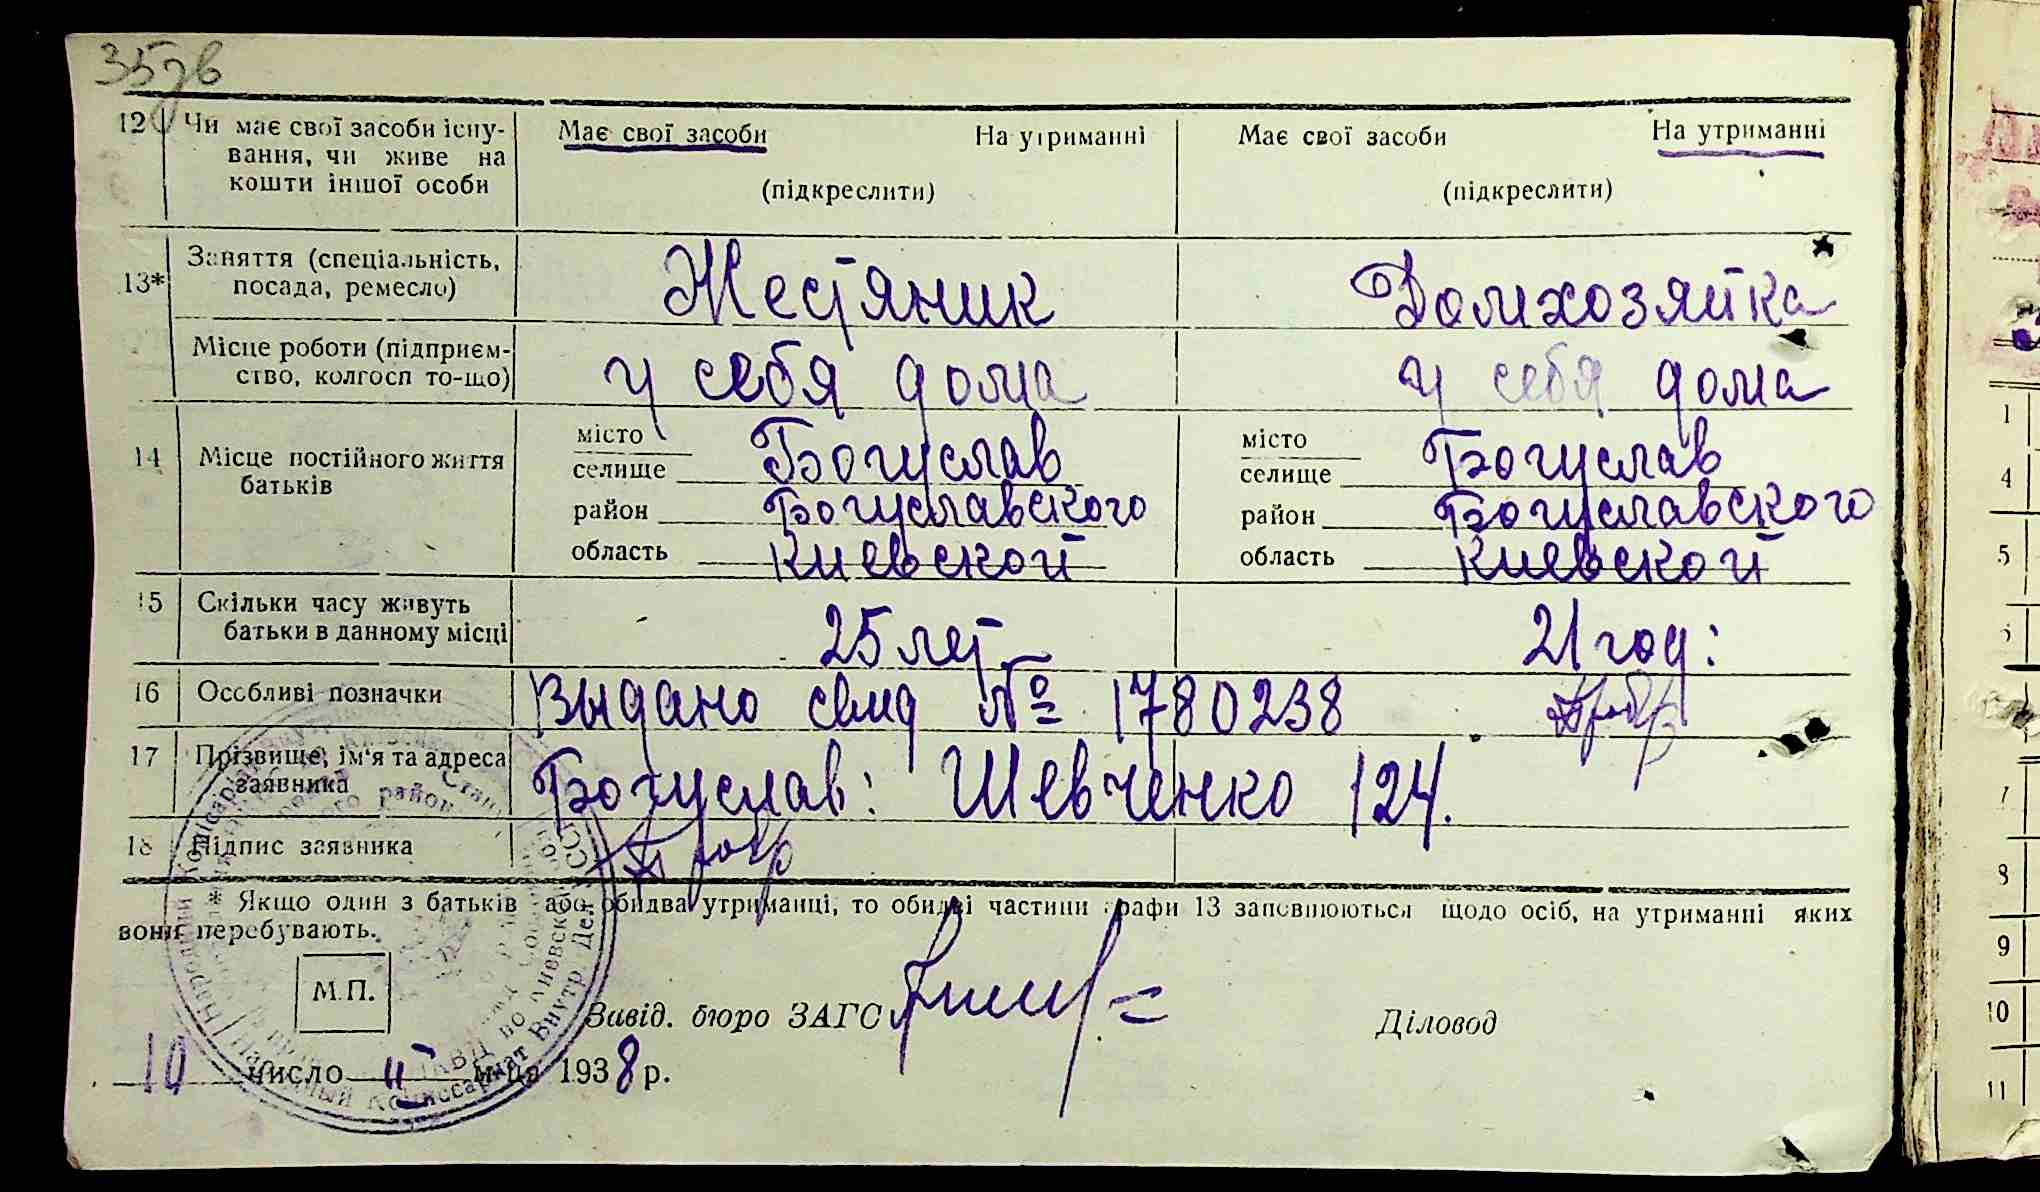 35зв
12 Чи має свої засоби існу- Має свої засоби На утриманні Має свої засоби На утриманні
вання, чи живе на
кошти іншої особи (підкреслити) (підкреслити)
13* Заняття (спеціальність, Жестяник Домхозяйка
посада, ремесло)
Місце роботи (підприєм- у себя дома у себя дома
ство, колгосп то-що)
14 Місце постійного життя місто Богуслав місто Богуслав
батьків селище селище
район Богуславского район Богуславского
область Киевской область Киевской
15 Скільки часу живуть 25 лет 21 год:
батьки в данному місці
16 Особливі позначки Выдано свид № 1780238
17 Прізвище, ім'я та адреса Богуслав: Шевченко 124.
заявника
18 Підпис заявника
* Якщо один з батьків або обидва утриманці, то обидві частини графи 13 заповнюються щодо осіб, на утриманні яких
вони перебувають.
М.П.
Завід. бюро ЗАГС Діловод
10 число II м-ця 1938 р.
1
4
5
7
8
9
10
11